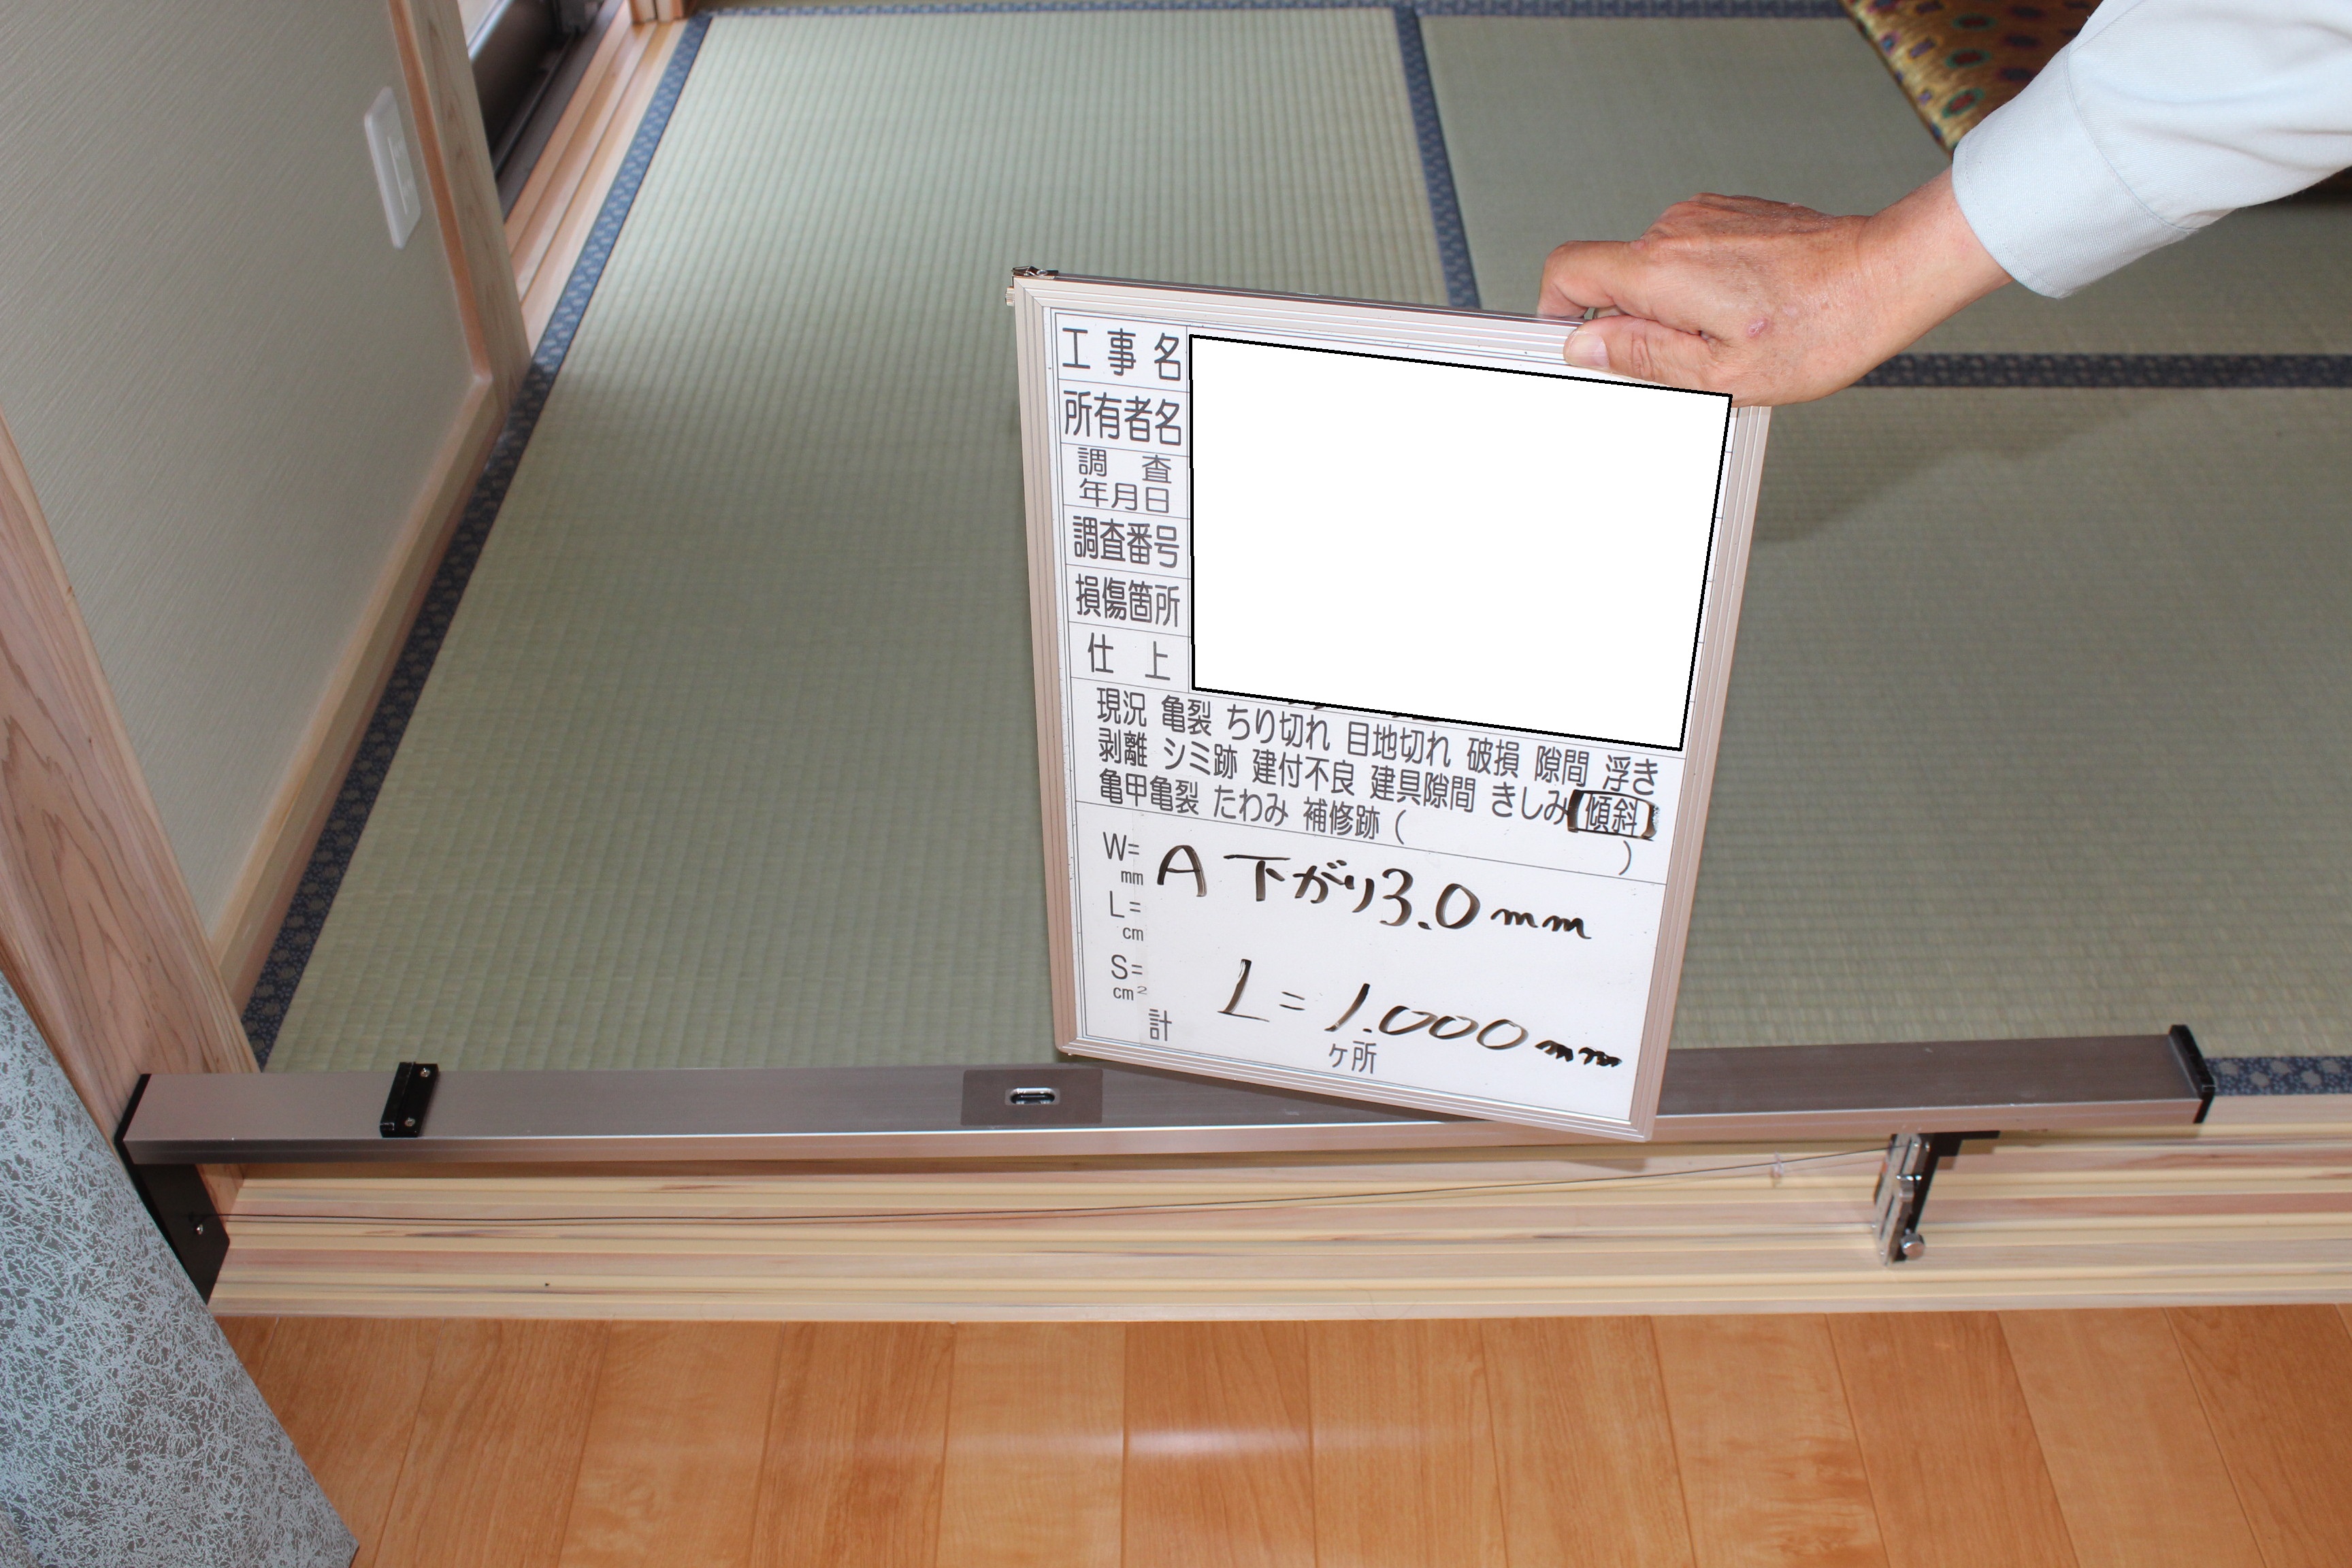 工事名
所有者名
調査
年月日
調査番号
損傷箇所
仕上
現況 亀裂 ちり切れ 目地切れ 破損 隙間 浮き
剥離 シミ跡 建付不良 建具隙間 きしみ 傾斜
亀甲亀裂 たわみ 補修跡 ( )
W= mm
A 下がり3.0mm
L= cm
S= cm²
L=1.000mm
計 ヶ所